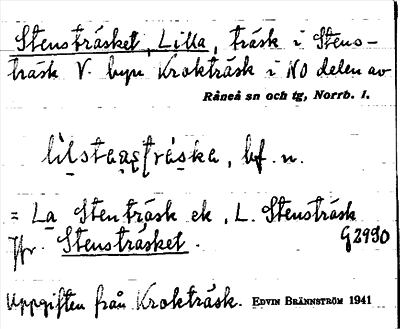 Stensträsket, Lilla, träsk i Stens-
träsk V. byn Krokträsk i NO delen av
Råneå sn och tg, Norrb. l.
bf. n.
= La Stenträsk ek, L. Stensträsk
Jfr. Stensträsket. G2990
Uppgiften från Krokträsk. EDVIN BRÄNNSTRÖM 1941